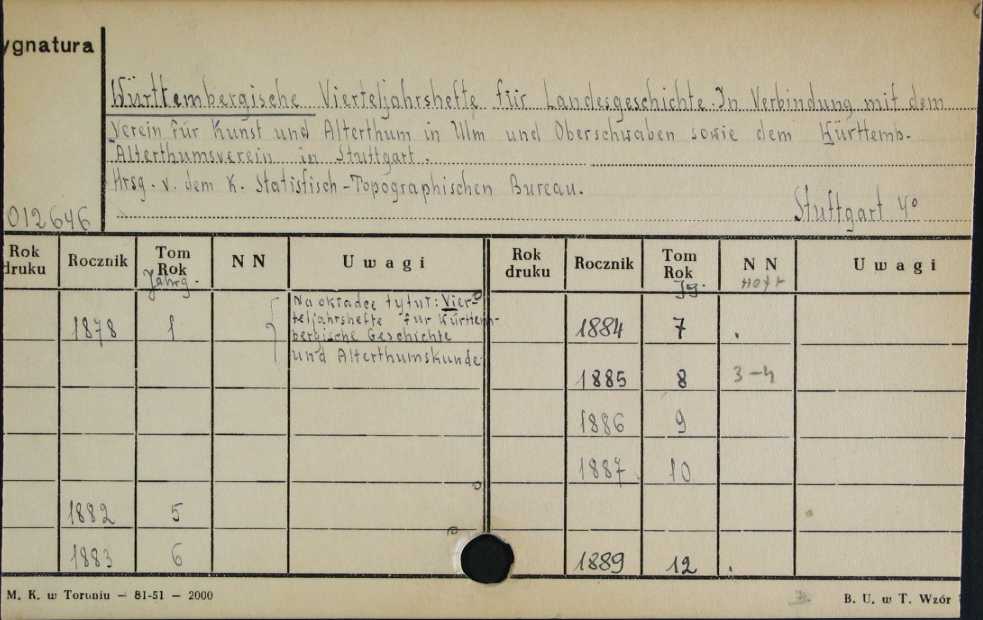 ygnatura
Württembergische Vierteljahrshefte für Landesgeschichte. In Verbindung mit dem
Verein für Kunst und Alterthum in Ulm und Oberschwaben sowie dem Württemb.
Alterthumsverein in Stuttgart.
Hrsg. v. dem K. Statistisch-Topographischen Bureau.
012646 Stuttgart 4°
Rok druku Rocznik Tom Rok Jahrg. NN Uwagi Rok druku Rocznik Tom Rok Jg. NN Uwagi
Na okładce tytuł: Vier-
teljahrshefte für Württem-
bergische Geschichte
und Alterthumskunde
1878 1 1884 7 .
1885 8 3-4
1886 9
1887 10
1882 5
1883 6 1889 12 .
M. K. w Toruniu — 81-51 — 2000 B. U. w T. Wzór